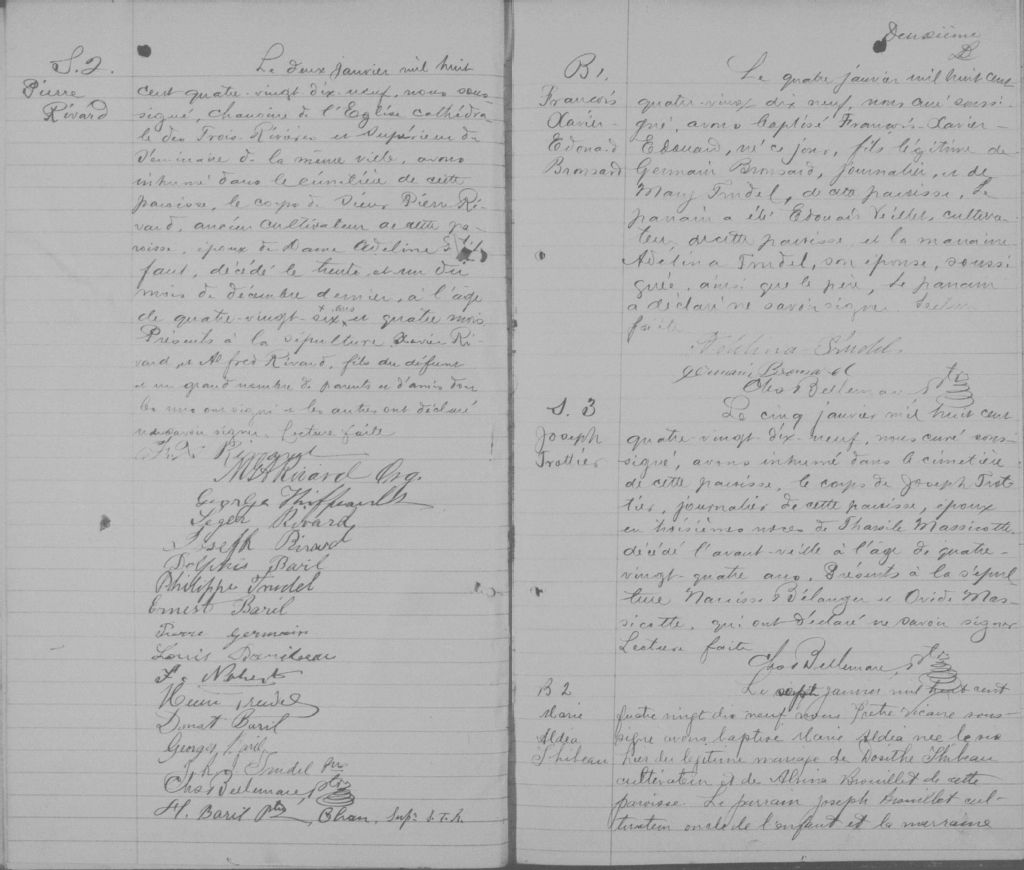 S. 2.
Pierre
Rivard
Le deux janvier mil huit
cent quatre-vingt dix-neuf, nous sous-
signé, chanoine de l'Eglise cathédra-
le des Trois-Rivières et Supérieur du
Séminaire de la même ville, avons
inhumé dans le cimetière de cette
paroisse, le corps de Sieur Pierre Ri-
vard, ancien cultivateur de cette pa-
roisse, époux de Dame Adeline
faut, décédé le trente et un du
mois de décembre dernier, à l'âge
de quatre-vingt-six ans et quatre mois.
Présents à la sépulture Xavier Ri-
vard, et Alfred Rivard, fils du défunt
et un grand nombre de parents et d'amis dont
les uns ont signé et les autres ont déclaré
ne savoir signer. Lecture faite
Rivard
Rivard
Georges Thiffeault
Rivard
Joseph Rivard
Dolphis Baril
Philippe Trudel
Ernest Baril
Pierre Germain
Louis
Henri Trudel
Donat Baril
Georges
Trudel Ptre
Chas Bellemare, Ptre
H. Baril Ptre, Chan. Sup. S.T.R.
Deuxième
B
B 1.
François
Xavier-
Edouard
Brossard
Le quatre janvier mil huit cent
quatre-vingt dix neuf, nous curé soussi-
gné, avons baptisé François-Xavier-
Edouard, né ce jour, fils légitime de
Germain Brossard, journalier, et de
Mary Trudel, de cette paroisse. Le
parrain a été Edouard Veillet, cultiva-
teur, de cette paroisse et la marraine
Adelina Trudel, son épouse, soussi-
gnée, ainsi que le père, Le parrain
a déclaré ne savoir signer Lecture
faite
Adelina Trudel
Germain Brossard
Chas Bellemare, Ptre
S. 3
Joseph
Trottier
Le cinq janvier mil huit cent
quatre-vingt dix-neuf, nous curé sous-
signé, avons inhumé dans le cimetière
de cette paroisse, le corps de Joseph Trot-
tier, journalier de cette paroisse, époux
en troisièmes noces de Tharsile Massicotte,
décédé l'avant-veille à l'âge de quatre-
vingt-quatre ans. Présents à la sépul-
ture Narcisse Bélanger et Ovide Mas-
sicotte, qui ont déclaré ne savoir signer
Lecture faite
Chas Bellemare, Ptre
B 2
Marie
Aldéa
Thibeau
Le sept janvier mil huit cent
quatre vingt dix neuf nous Prêtre Vicaire sous-
signé avons baptisé Marie Aldéa née
hier du légitime mariage de Dosithé Thibeau
cultivateur et de Alvina Brouillet de cette
paroisse. Le parrain Joseph Brouillet cul-
tivateur oncle de l'enfant et la marraine